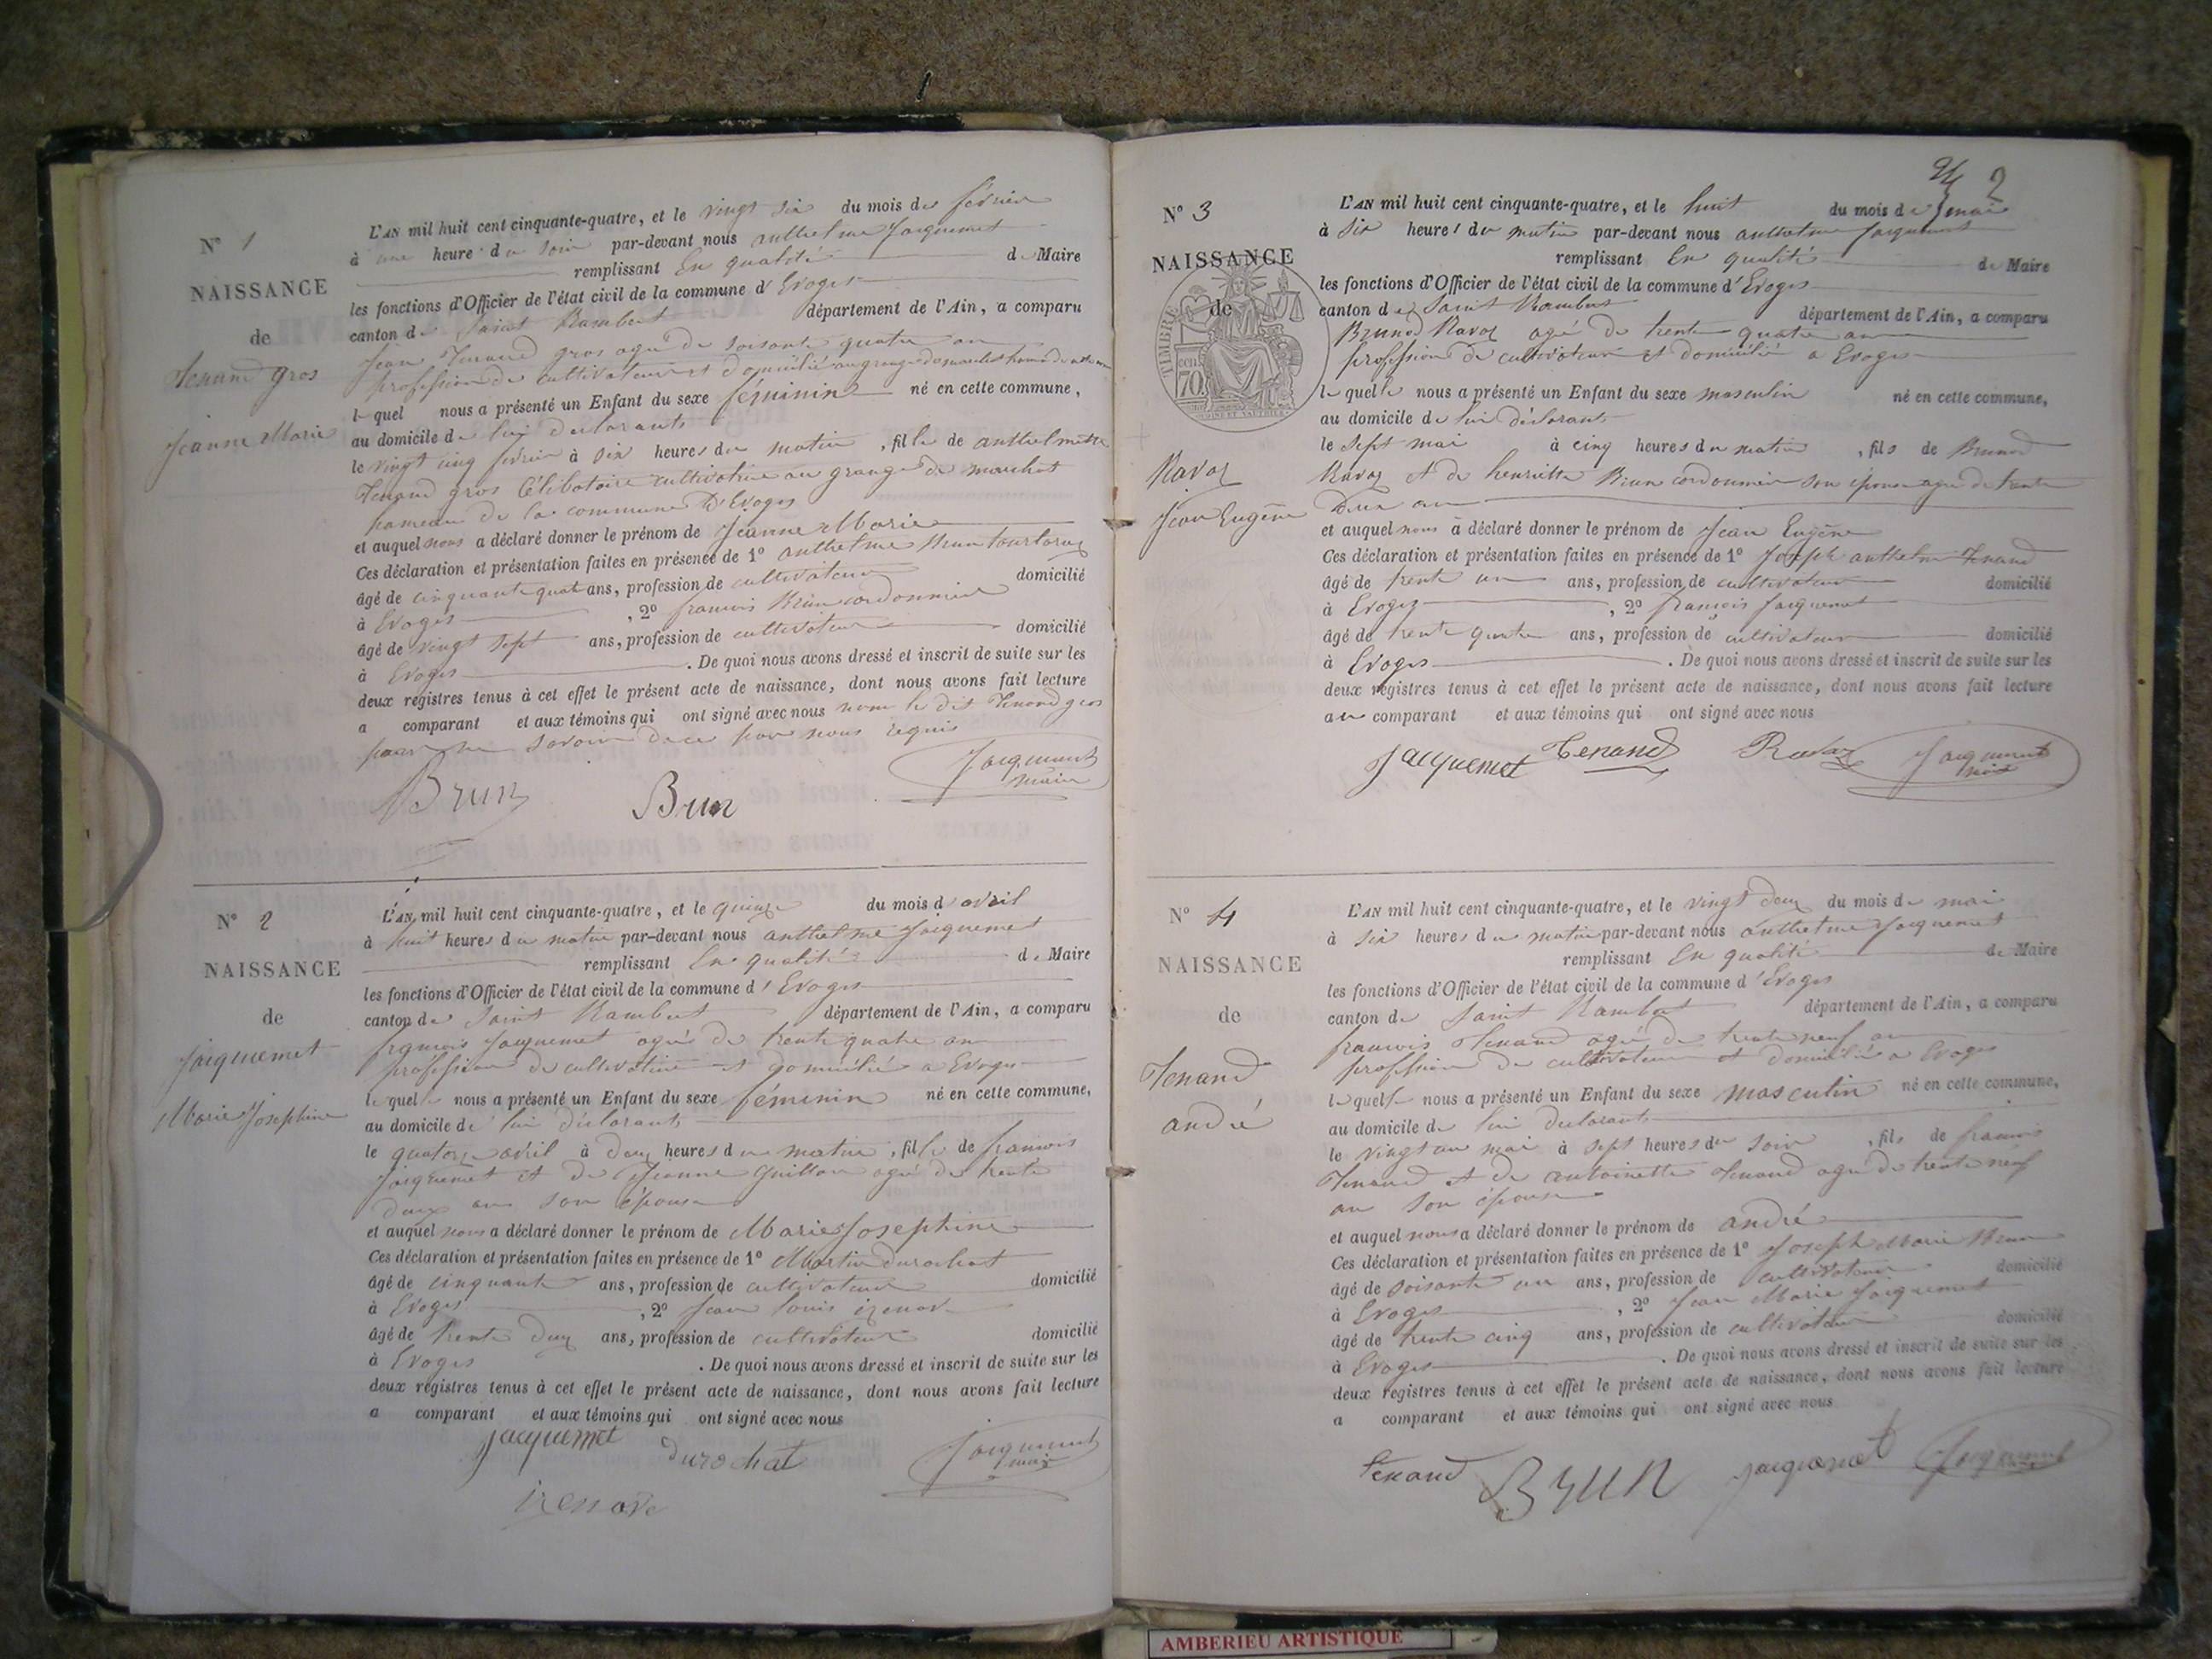 N° 1
NAISSANCE
de
Tenand gros
Jeanne Marie
L'AN mil huit cent cinquante-quatre, et le vingt six du mois de février
à une heure du soir par-devant nous anthelme Jacquemet
remplissant En qualité de Maire
les fonctions d'Officier de l'état civil de la commune d'Evoges
canton de Saint Rambert département de l'Ain, a comparu
Jean Tenand gros agé de soisante quatre an
profession de cultivateur et domicilié au grange de marchat hameau
le quel nous a présenté un Enfant du sexe féminin né en cette commune,
au domicile de lui déclarant
le vingt cinq février à six heures du matin, fille de anthelmette
Tenand gros Célibataire cultivatrice au grange de marchat
hameau de la commune D'Evoges
et auquel nous a déclaré donner le prénom de Jeanne Marie
Ces déclaration et présentation faites en présence de 1° anthelme Brun
âgé de cinquante quatre ans, profession de cultivateur domicilié
à Evoges, 2° francois Brun cordonnier
âgé de vingt sept ans, profession de cultivateur domicilié
à Evoges. De quoi nous avons dressé et inscrit de suite sur les
deux registres tenus à cet effet le présent acte de naissance, dont nous avons fait lecture
a comparant et aux témoins qui ont signé avec nous non le dit Tenand gros
pour ne savoir de ce par nous requis
Brun Brun Jacquemet
maire
N° 2
NAISSANCE
de
Jacquemet
Marie Josephine
L'AN mil huit cent cinquante-quatre, et le quinze du mois d avril
à huit heures du matin par-devant nous anthelme Jacquemet
remplissant En qualité de Maire
les fonctions d'Officier de l'état civil de la commune d'Evoges
canton de Saint Rambert département de l'Ain, a comparu
francois Jacquemet agé de trente quatre an
profession de cultivateur et domicilié a Evoges
le quel nous a présenté un Enfant du sexe féminin né en cette commune,
au domicile de lui déclarant
le quatorze avril à deux heures du matin, fille de francois
Jacquemet et de Jeanne Guillon agé de trente
deux an son épouse
et auquel nous a déclaré donner le prénom de Marie Josephine
Ces déclaration et présentation faites en présence de 1° Martin durochat
âgé de cinquante ans, profession de cultivateur domicilié
à Evoges, 2° Jean louis irenard
âgé de trente deux ans, profession de cultivateur domicilié
à Evoges. De quoi nous avons dressé et inscrit de suite sur les
deux registres tenus à cet effet le présent acte de naissance, dont nous avons fait lecture
a comparant et aux témoins qui ont signé avec nous
Jacquemet durochat Jacquemet
maire
2
N° 3
NAISSANCE
de
TIMBRE
70
Ravaz
Jean Eugène
L'AN mil huit cent cinquante-quatre, et le huit du mois de mai
à six heures du matin par-devant nous anthelme Jacquemet
remplissant En qualité de Maire
les fonctions d'Officier de l'état civil de la commune d'Evoges
canton de Saint Rambert département de l'Ain, a comparu
Brunod Ravaz agé de trente quatre an
profession de cultivateur et domicilié a Evoges
le quel nous a présenté un Enfant du sexe masculin né en cette commune,
au domicile de lui déclarant
le sept mai à cinq heures du matin, fils de Brunod
Ravaz et de henriette Brun cordonnier son épouse agé de trente
deux an
et auquel nous a déclaré donner le prénom de Jean Eugène
Ces déclaration et présentation faites en présence de 1° Joseph anthelme Tenand
âgé de trente un ans, profession de cultivateur domicilié
à Evoges, 2° francois Jacquemet
âgé de trente quatre ans, profession de cultivateur domicilié
à Evoges. De quoi nous avons dressé et inscrit de suite sur les
deux registres tenus à cet effet le présent acte de naissance, dont nous avons fait lecture
au comparant et aux témoins qui ont signé avec nous
Jacquemet Tenand Ravaz Jacquemet
N° 4
NAISSANCE
de
Tenand
andré
L'AN mil huit cent cinquante-quatre, et le vingt deux du mois de mai
à six heures du matin par-devant nous anthelme Jacquemet
remplissant En qualité de Maire
les fonctions d'Officier de l'état civil de la commune d'Evoges
canton de Saint Rambert département de l'Ain, a comparu
francois Tenand agé de trente neuf an
profession de cultivateur et domicilié a Evoges
le quel nous a présenté un Enfant du sexe masculin né en cette commune,
au domicile de lui déclarant
le vingt un mai à sept heures du soir, fils de francois
Tenand et de antoinette Tenand agé de trente neuf
an son épouse
et auquel nous a déclaré donner le prénom de andré
Ces déclaration et présentation faites en présence de 1° Joseph Marie Brun
âgé de soisante un ans, profession de cultivateur domicilié
à Evoges, 2° Jean Marie Jacquemet
âgé de trente cinq ans, profession de cultivateur domicilié
à Evoges. De quoi nous avons dressé et inscrit de suite sur les
deux registres tenus à cet effet le présent acte de naissance, dont nous avons fait lecture
a comparant et aux témoins qui ont signé avec nous
Tenand Brun Jacquemet Jacquemet
AMBERIEU ARTISTIQUE